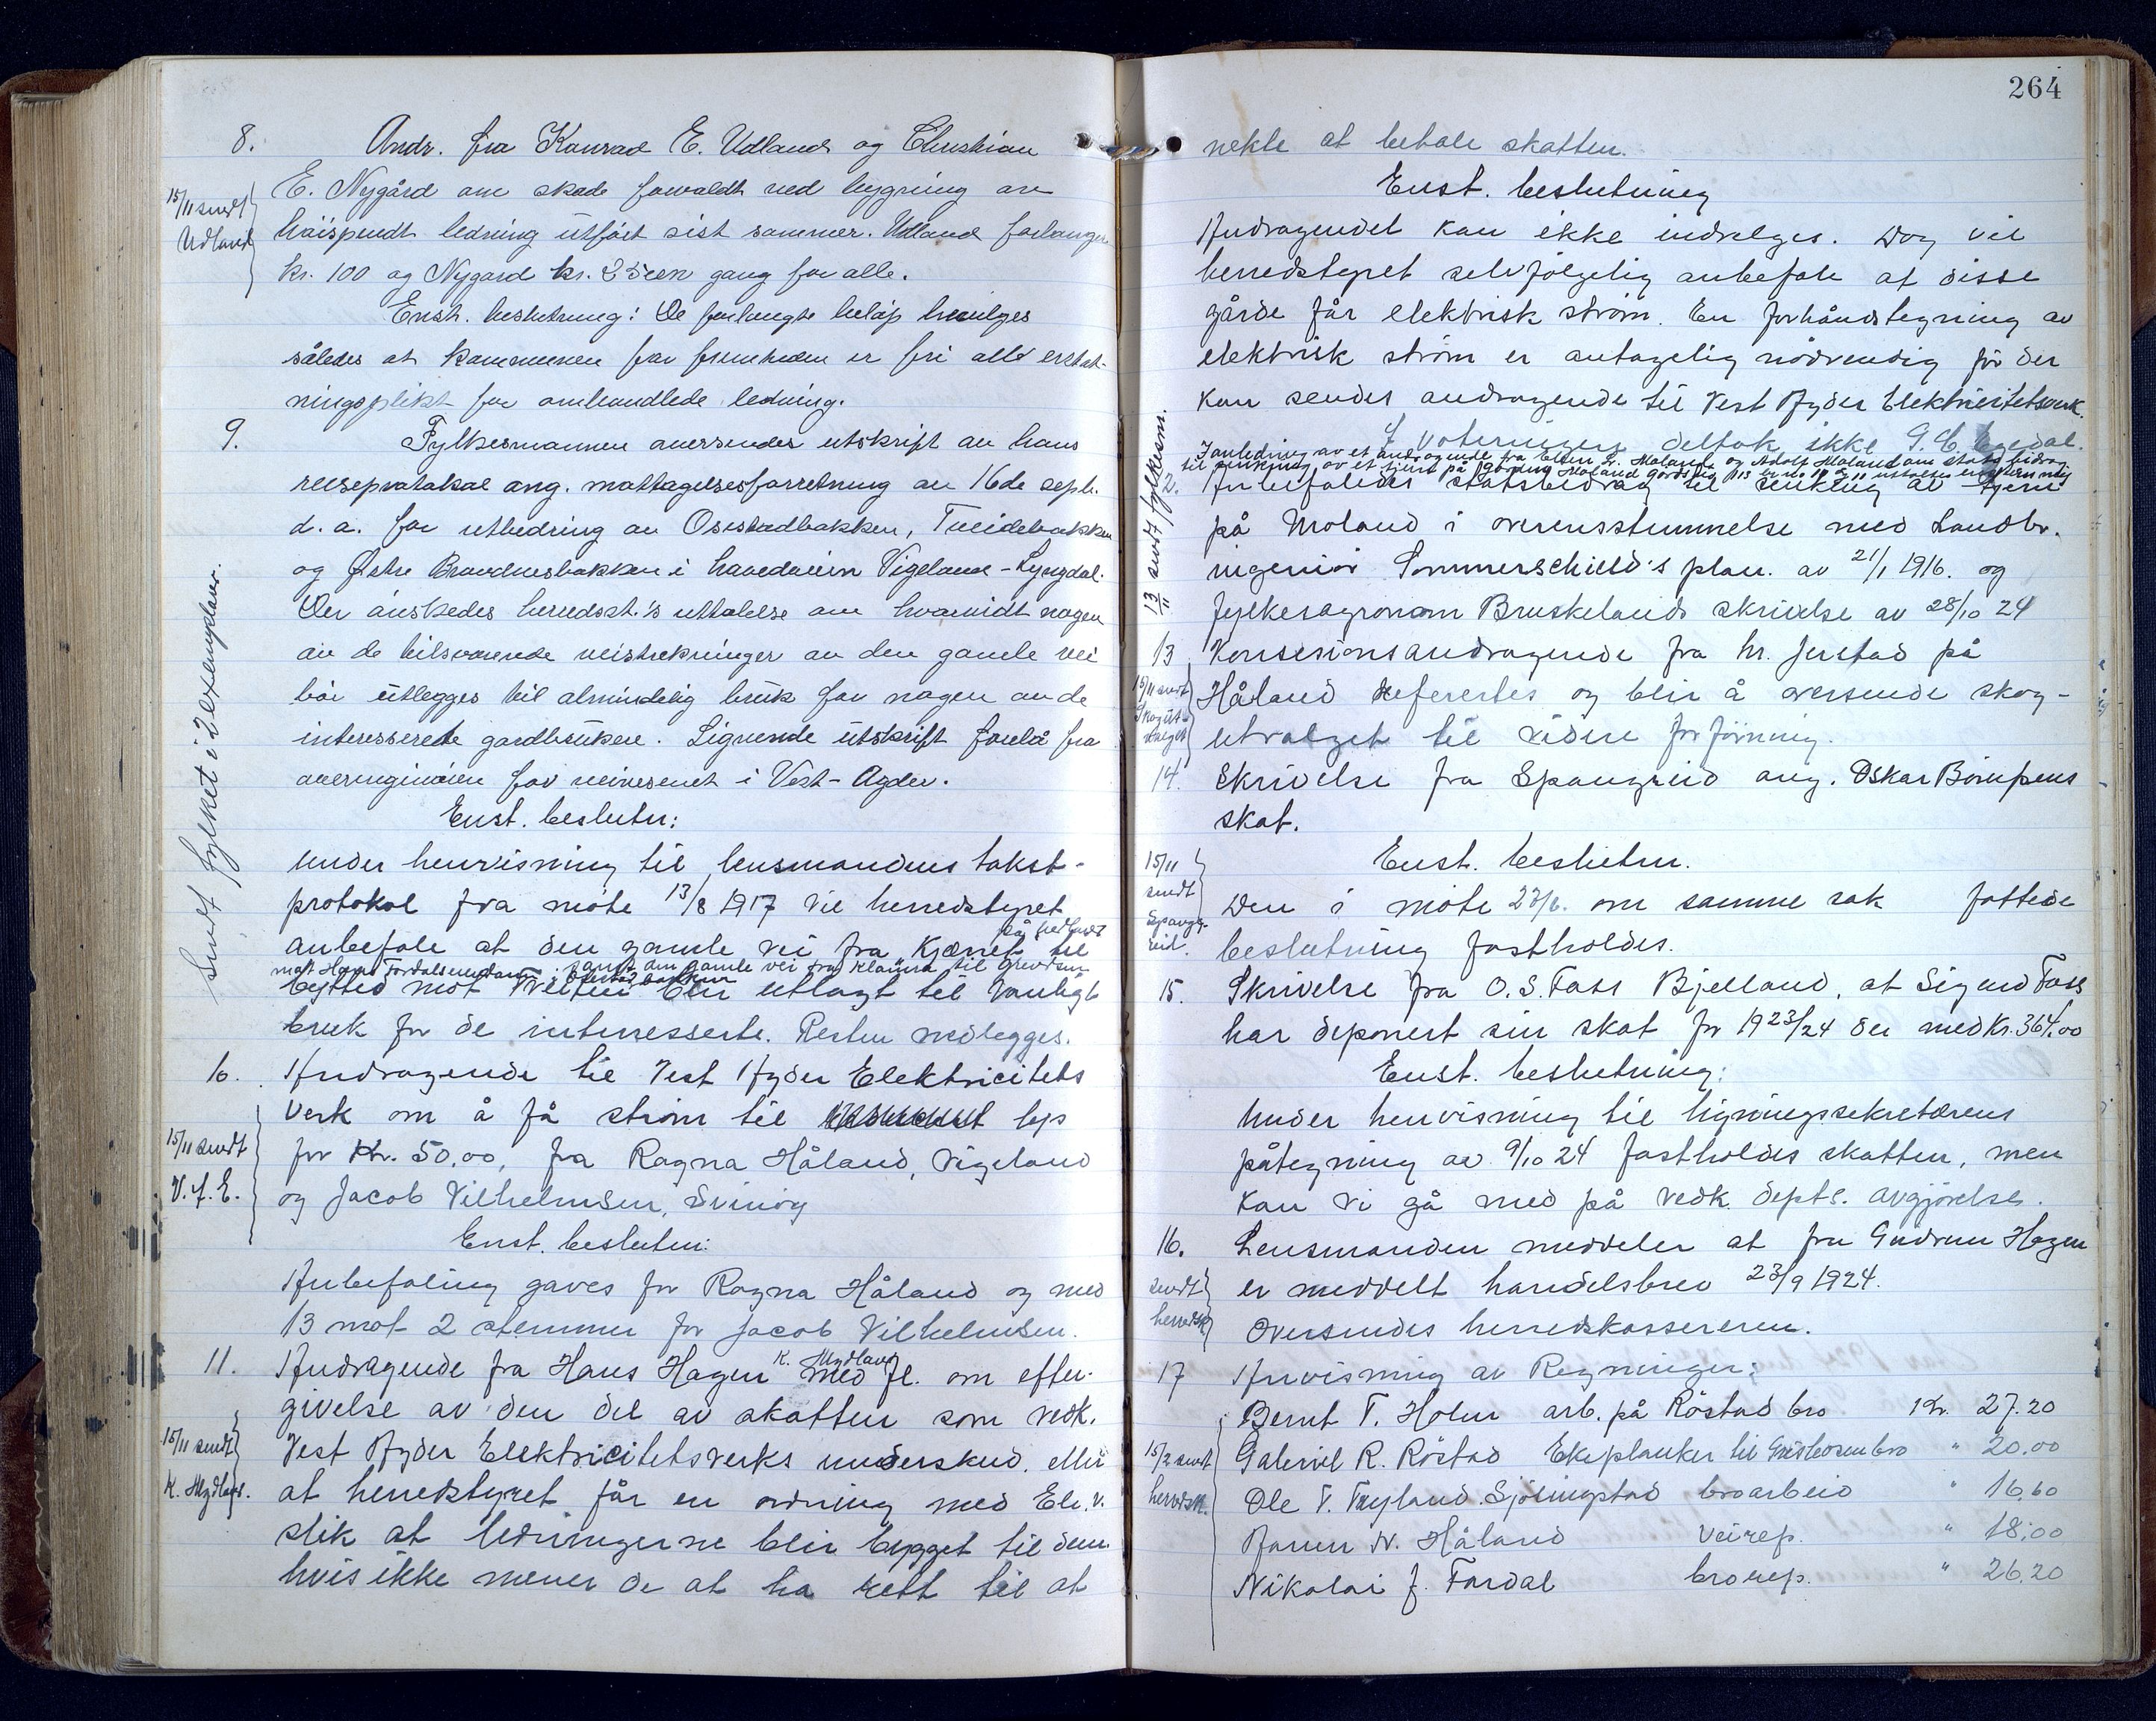 8. Andr. fra Konrad E. Udland og Christian
E. Nygård om skade forvoldt ved bygning av
høispendt ledning utført sist sommer. Udland forlanger
kr. 100 og Nygård kr. 25 een gang for alle.
15/11 sendt
Udland
Enst. beslutning: De forlangte beløp bevilges
således at kommunen for fremtiden er fri alt erstat-
ningsplikt for omhandlede ledning.
9. Fylkesmannen oversender utskrift av hans
reiseprotokol ang. mottagelsesforretning av 16de sept.
d. a. for utbedring av Osestadbakken, Tueidebakken
og Østre Brandnesbakken i hovedveien Vigeland - Lyngdal.
Der ønskedes herredsst.'s uttalelse om hvorvidt nogen
av de tilsvarende veistrekninger av den gamle vei
bør utlegges til almindelig bruk for nogen av de
interesserede gardbrukere. Lignende utskrift forelå fra
overingeniøren for veivesenet i Vest-Agder.
Sendt fylket i 2 exemplarer.
Enst. beslutn:
under henvisning til lensmandens takst-
protokol fra møte 13/8 1917 vil herredstyret
anbefale at den gamle vei fra Kjæret til
samt den gamle vei fra Klauva til Grevdsen
bytted mot blir utlagt til vanligt
bruk for de interesserte. Resten nedlegges.
10. Andragende til Vest Agder Elektricitets
verk om å få strøm til lys
for Kr. 50,00, fra Ragna Håland, Vigeland
og Jacob Vilhelmsen, Svinøy
15/11 sendt
V. A. E.
Enst. beslutn:
Anbefaling gaves for Ragna Håland og med
13 mot 2 stemmer for Jacob Vilhelmsen.
11. Andragende fra Hans Hagen K. Mydland med fl. om efter-
givelse av den del av skatten som vedk.
Vest Agder Elektricitetsverks underskud, eller
at herredstyret får en ordning med Ele.v.
slik at ledningerne blir bygget til dem
hvis ikke mener de at ha rett til at
15/11 sendt
K. Mydland.
264
nekte at betale skatten.
Enst. beslutning
Andragendet kan ikke indvilges. Dog vil
herredstyret selvfølgelig anbefale at disse
gårde får elektrisk strøm. En forhåndstegning av
elektrisk strøm er antagelig nødvendig før der
kan sendes andragende til Vest Agder Elektricitetsverk.
I voteringen deltok ikke G. C. Egedal.
I anledning av et andragende fra Elden G. Moland og Adolf Moland om statsbidrag
til senkning av et tjern på Moland
12. Anbefaledes statsbidrag til senkning av tjern
på Moland i overensstemmelse med Landbr.
ingeniør Sommerschield's plan av 21/1 1916. og
fylkesagronom Bruskelands skrivelse av 28/10 24
13/11 sendt fylkesm.
13 Konsesionsandragende fra hr. Jerstad på
Håland refererdes og blir å oversende skog-
utvalget til videre forføining.
15/11 sendt
Skogut-
valget
14. Skrivelse fra Spangreid ang. Oskar Bømpens
skat.
Enst. beslutn.
Den i møte 23/6. om samme sak fattede
beslutning fastholdes.
15/11
sendt
Spang-
reid.
15. Skrivelse fra O. S. Foss Bjelland, at Sigurd Foss
har deponert sin skat for 1923/24 der med Kr. 364.00
Enst. beslutning:
Under henvisning til ligningssekretærens
påtegning av 9/10 24 fastholdes skatten, men
kan vi gå med på vedk. depts. avgjørelse.
16. Lensmanden meddeler at fru Gudrun Hagen
er meddelt handelsbrev 23/9 1924.
Oversendes herredskassereren.
sendt
herredsk.
17 Anvisning av Regninger:
Bernt T. Holm arb. på Röstad bro Kr. 27.20
Gabriel R. Röstad Ekeplanker til bro " 20.00
Ole T. Fuyland Sjölingstad broarbeid " 16.60
N. Håland Veirep. " 18.00
Nikolai J. Fardal brorep. " 26.20
15/2 sendt
herredsk.